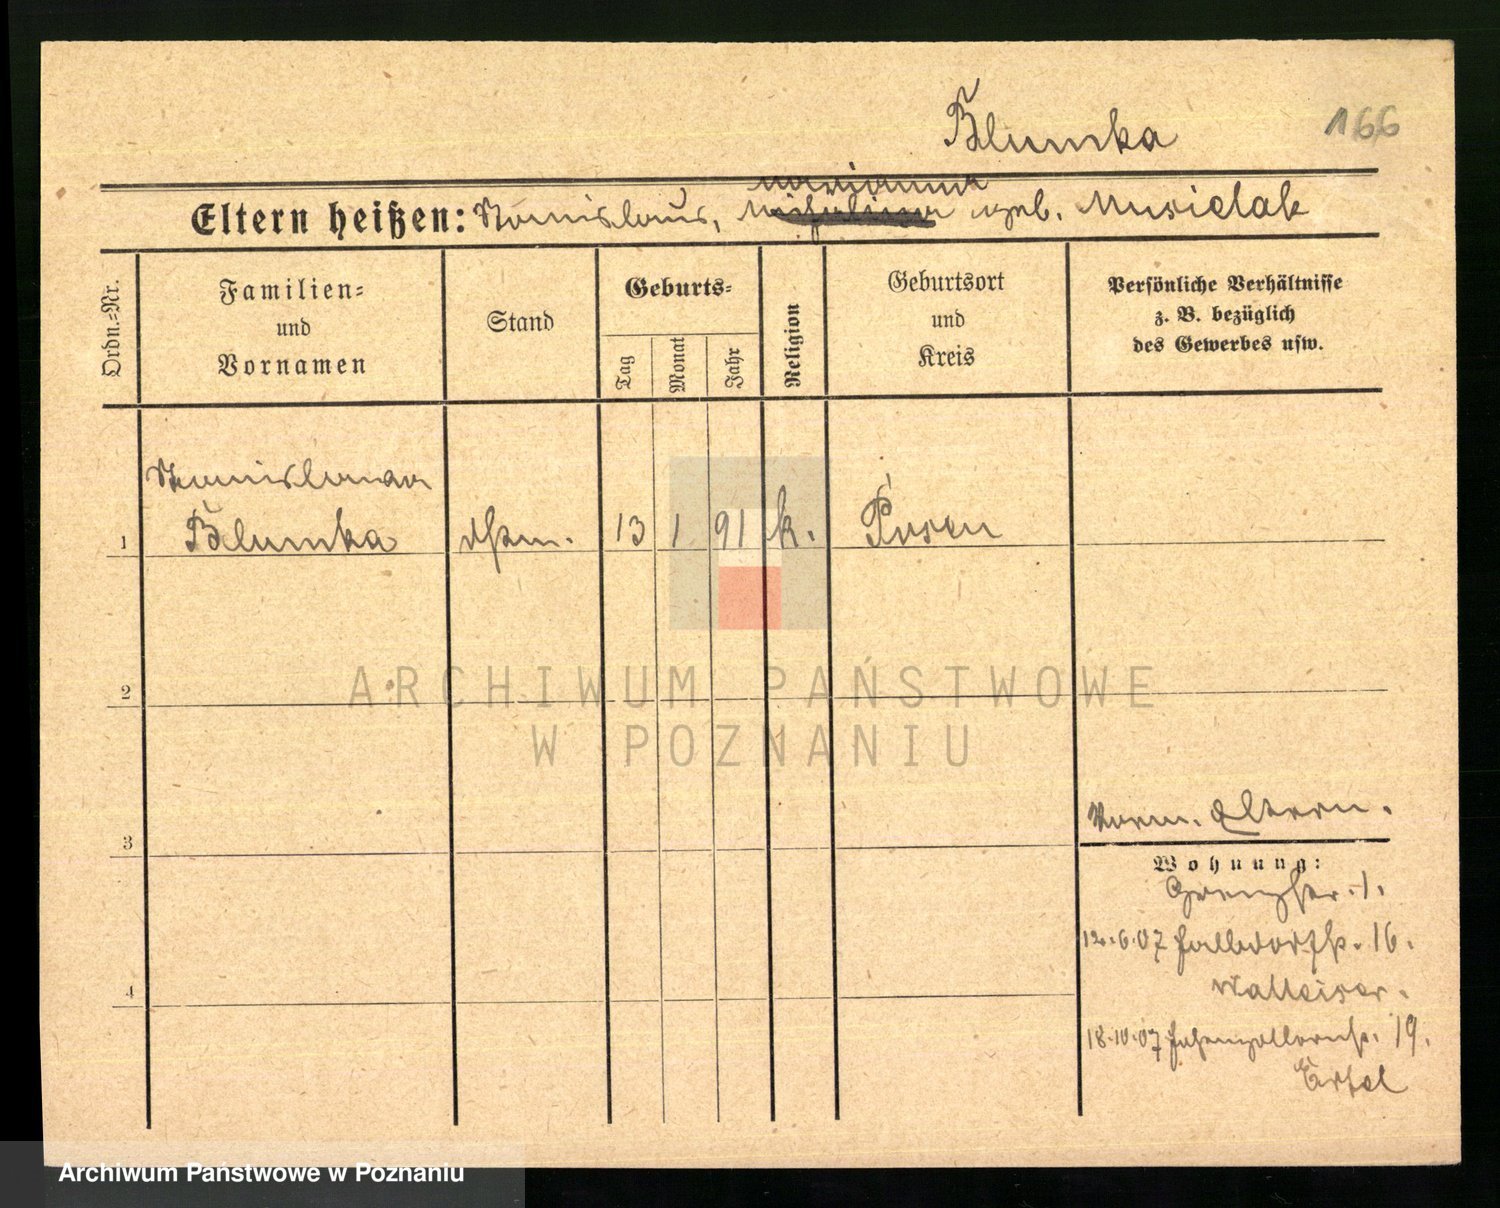 Blumka
166
Marianna
Eltern heißen: Stanislaus, geb. Musielak
Ordn.-Nr.
Familien-
und
Vornamen
Stand
Geburts-
Tag
Monat
Jahr
Religion
Geburtsort
und
Kreis
Persönliche Verhältnisse
z. B. bezüglich
des Gewerbes usw.
Stanislawa
1 Blumka 13 1 91 k. Posen
2
3
4
Eltern.
Wohnung:
Grenzstr. 1.
12.6.07 16.
18.10.07 Hohenzollernstr. 19.
ARCHIWUM PAŃSTWOWE
W POZNANIU
Archiwum Państwowe w Poznaniu